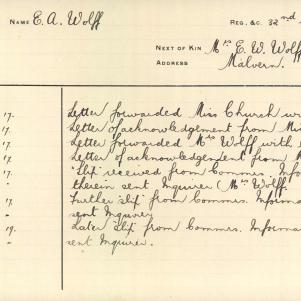 NAME E. A. Wolff
REG. &C. 32nd
NEXT OF KIN Mrs E. W. Wolff
ADDRESS Malvern.
17. Letter forwarded Miss Church
17. Letter of acknowledgement from Mis
17. Letter forwarded Mrs Wolff with
17. Letter of acknowledgement from M
17. "Slip" received from Commrs. Info
" therein sent Inquirer (Mrs Wolff.
17. Further "slip" from Commrs. Informa
" sent Inquirer
19. Later "slip" from Commrs. Informa
sent Inquirer.